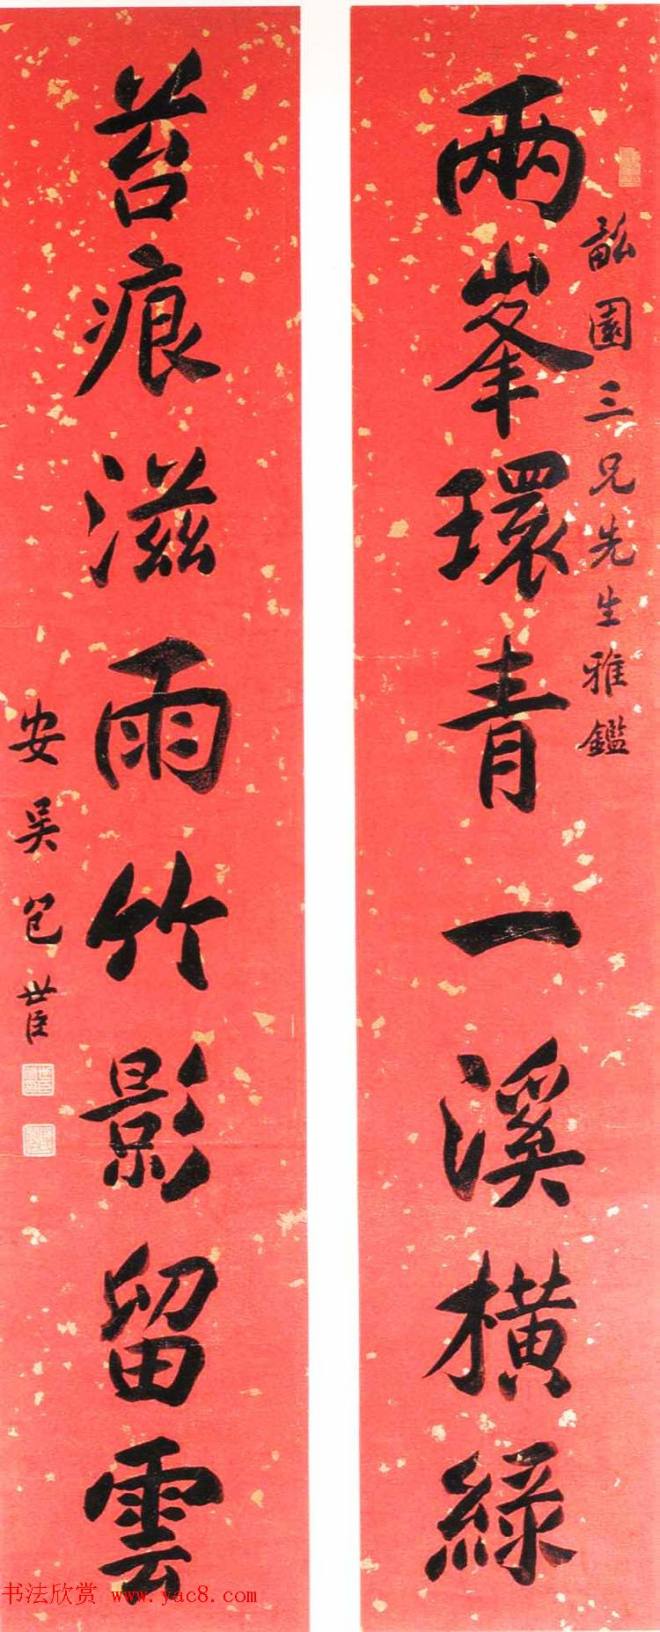 兩峯環青一溪橫綠
畝園三兄先生雅鑑
苔痕滋雨竹影留雲
安吳包世臣
书法欣赏 www.yac8.com